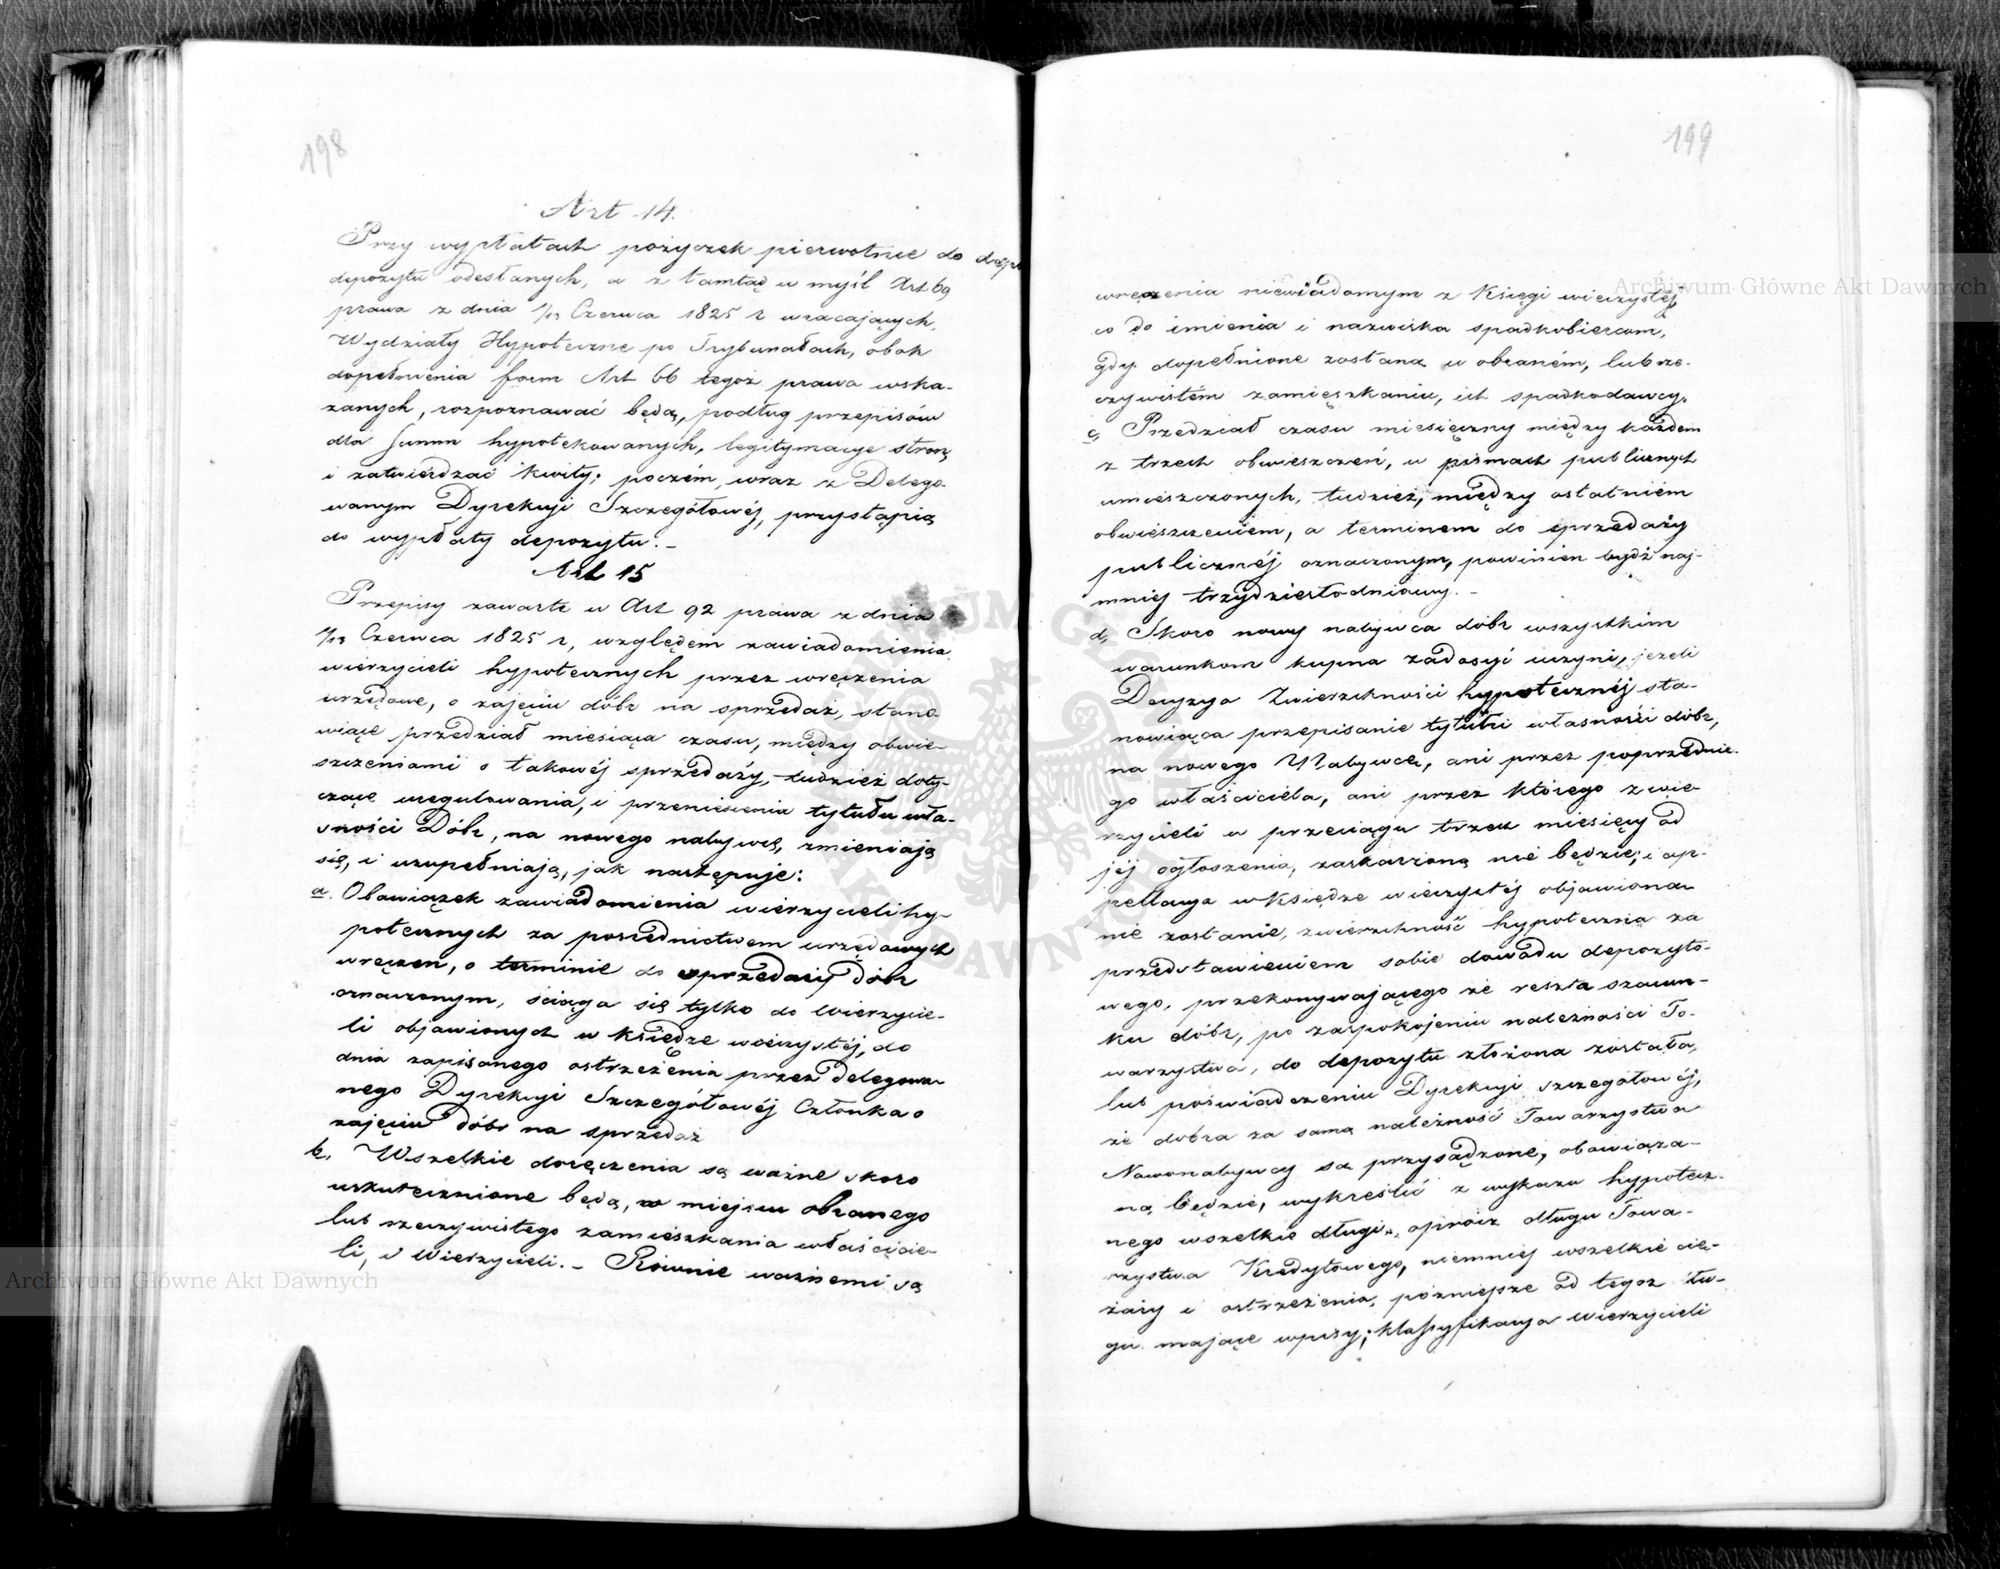 198
Art 14.
Przy wypłatach pożyczek pierwotnie do
depozytu odesłanych, a z tamtąd w myśl Art 69
prawa z dnia 1/13 Czerwca 1825 r wracających,
Wydziały Hypoteczne po Trybunałach, obok
dopełnienia form Art 66 tegoż prawa wska-
zanych, rozpoznawać będą, podług przepisów
dla summ hypotekowanych, legitymacye stron
i zatwierdzać kwity; poczém, wraz z Delego-
wanym Dyrekcyi Szczegółowéj, przystąpią
do wypłaty depozytu. -
Art 15
Przepisy zawarte w Art 92 prawa z dnia
1/13 Czerwca 1825 r, względem zawiadomienia
wierzycieli hypotecznych przez wręczenia
urzędowe, o zajęciu dóbr na sprzedaż, stano-
wiące przedział miesiąca czasu, między obwie-
szczeniami o takowéj sprzedaży, tudzież doty-
czące uregulowania, i przeniesienia tytułu wła-
sności Dóbr, na nowego nabywcę, zmieniają
się, i uzupełniają, jak następuje:
a. Obowiązek zawiadomienia wierzycieli hy-
potecznych za pośrednictwem urzędowych
wręczeń, o terminie do sprzedaży dóbr
oznaczonym, ściąga się tylko do Wierzycie-
li objawionych w księdze wieczystéj, do
dnia zapisanego ostrzeżenia przez delegowa-
nego Dyrekcyi Szczegółowéj Członka o
zajęciu dóbr na sprzedaż
b. Wszelkie doręczenia są ważne skoro
uskutecznione będą, w miejscu obranego
lub rzeczywistego zamieszkania właścicie-
li, i Wierzycieli. - Równie ważnemi są
199
wręczenia niewiadomym z Księgi wieczystéj
co do imienia i nazwiska spadkobiercom,
gdy dopełnione zostaną w obraném, lub rze-
czywistém zamięszkaniu, ich spadkodawcy.
c, Przedział czasu miesięczny między każdem
z trzech obwieszczeń, w pismach publicznych
umieszczonych, tudzież, między ostatniém
obwieszczeniem, a terminem do sprzedaży
publicznéj oznaczonym, powinien bydź naj-
mniej trzydziestodniowy. -
d, Skoro nowy nabywca dóbr wszystkim
warunkom kupna zadosyć uczyni, jeżeli
Decyzya Zwierzchności hypotecznéj sta-
nowiąca przepisanie tytułu własności dóbr,
na nowego Nabywcę, ani przez poprzednie-
go właściciela, ani przez którego z wie-
rzycieli w przeciągu trzech miesięcy od
jéj ogłoszenia, zaskarżoną nie będzie; i ap-
pellacya w Księdze wieczystéj objawiona
nie zostanie, zwierzchność hypoteczna za
przedstawieniem sobie dowodu depozyto-
wego, przekonywającego że reszta szacun-
ku dóbr, po zaspokojeniu należności To-
warzystwa, do depozytu złożona została,
lub poświadczeniu Dyrekcyi szczegółowéj,
że dobra za samą należność Towarzystwa
Nowonabywcy są przysądzone, obowiąza-
ną będzie, wykreślić z wykazu hypotecz-
nego wszelkie długi, oprócz długu Towa-
rzystwa Kredytowego, niemniéj wszelkie cię-
żary i ostrzeżenia, późniejsze od tegoż dłu-
gu mające wpisy; klassyfikacya wierzycieli
Archiwum Główne Akt Dawnych
Archiwum Główne Akt Dawnych